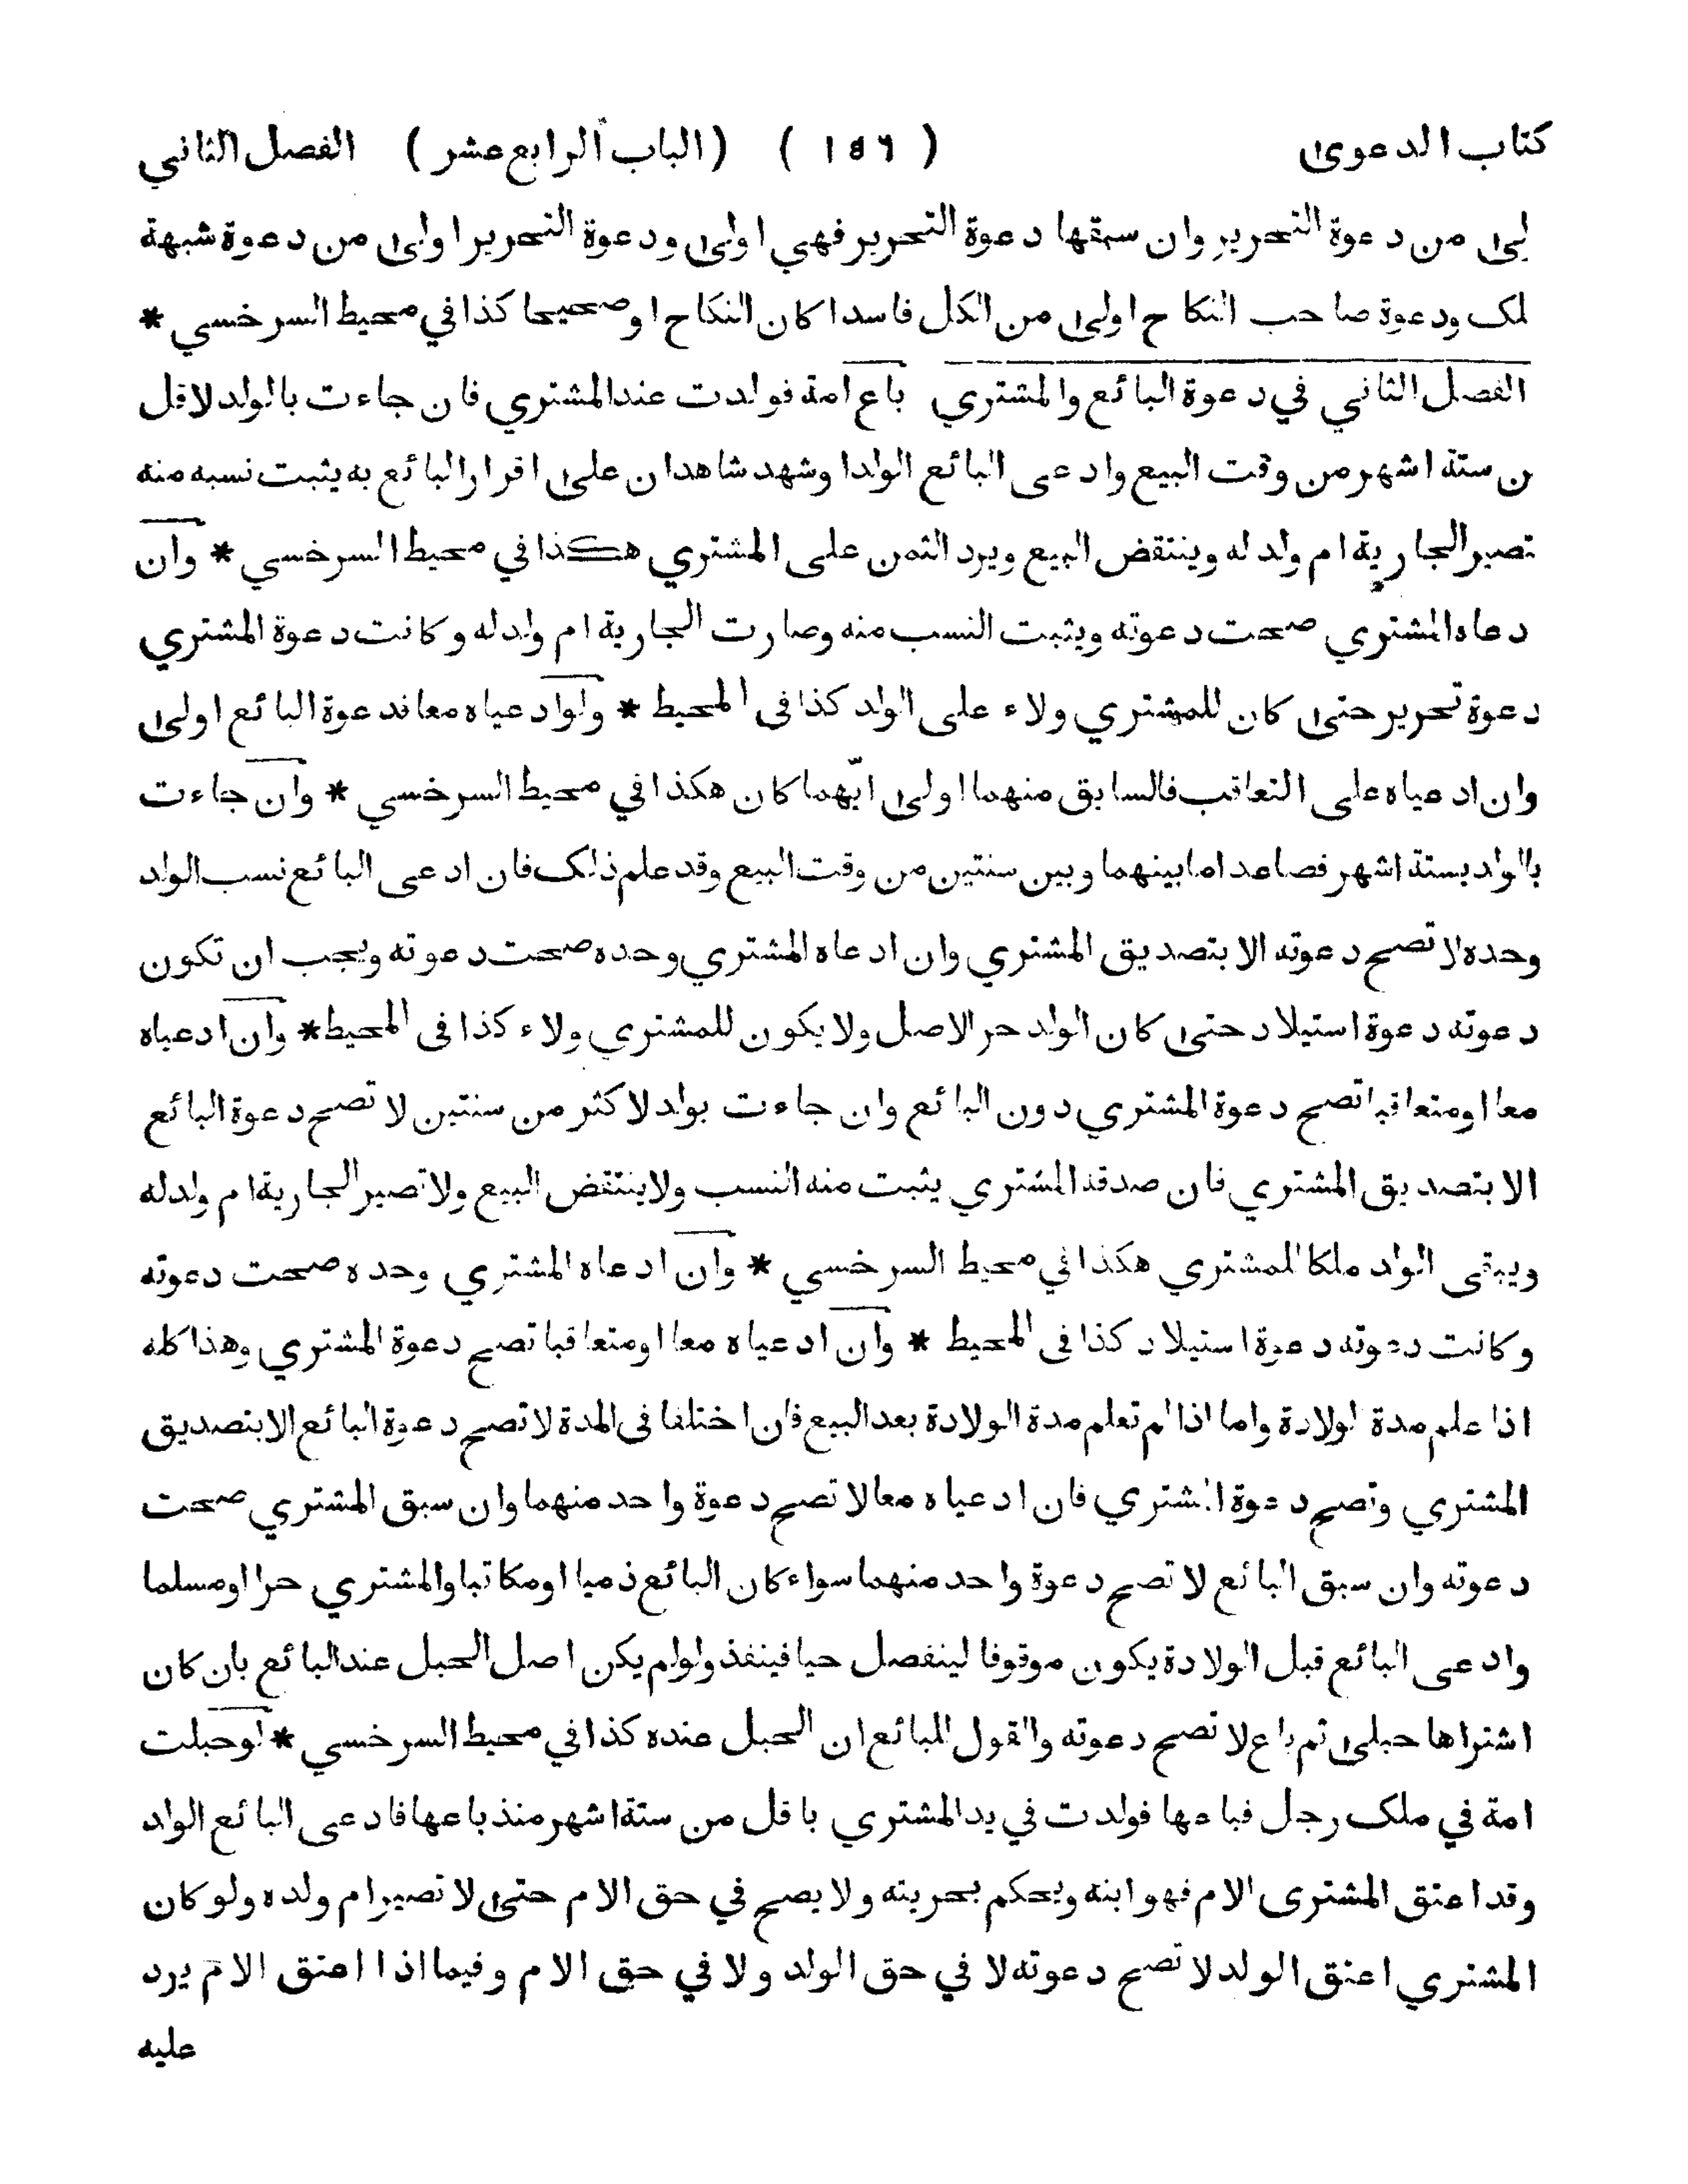 كتاب الدعوى ( ١٥٦ ) (الباب الرابع عشر) الفصل الثاني
لى من دعوة التحرير وان سبقها دعوة التحرير فهي اولى ودعوة التحرير اولى من دعوة شبهة
لمك ودعوة صاحب النكاح اولى من الكل فاسدا كان النكاح او صحيحا كذا في محيط السرخسي *
الفصل الثاني في دعوة البائع والمشتري باع امة فولدت عند المشتري فان جاءت بالولد لاقل
ن ستة اشهر من وقت البيع وادعى البائع الولد او شهد شاهدان على اقرار البائع به يثبت نسبه منه
تصير الجارية ام ولد له وينتقض البيع ويرد الثمن على المشتري هكذا في محيط السرخسي * وان
دعاه المشتري صحت دعوته ويثبت النسب منه وصارت الجارية ام ولد له وكانت دعوة المشتري
دعوة تحرير حتى كان للمشتري ولاء على الولد كذا فى المحيط * ولو ادعياه معا فدعوة البائع اولى
وان ادعياه على التعاقب فالسابق منهما اولى ايّهما كان هكذا في محيط السرخسي * وان جاءت
بالولد بستة اشهر فصاعدا ما بينهما وبين سنتين من وقت البيع وقد علم ذلك فان ادعى البائع نسب الولد
وحده لا تصح دعوته الا بتصديق المشتري وان ادعاه المشتري وحده صحت دعوته ويجب ان تكون
دعوته دعوة استيلاد حتى كان الولد حر الاصل ولا يكون للمشتري ولاء كذا فى المحيط * وان ادعياه
معا او متعاقبا تصح دعوة المشتري دون البائع وان جاءت بولد لاكثر من سنتين لا تصح دعوة البائع
الا بتصديق المشتري فان صدقه المشتري يثبت منه النسب ولا ينتقض البيع ولا تصير الجارية ام ولد له
ويبقى الولد ملكا للمشتري هكذا في محيط السرخسي * وان ادعاه المشتري وحده صحت دعوته
وكانت دعوته دعوة استيلاد كذا فى المحيط * وان ادعياه معا او متعاقبا تصح دعوة المشتري وهذا كله
اذا علم مدة لولادة واما اذا لم تعلم مدة الولادة بعد البيع فان اختلفا فى المدة لا تصح دعوة البائع الا بتصديق
المشتري وتصح دعوة المشتري فان ادعياه معا لا تصح دعوة واحد منهما وان سبق المشتري صحت
دعوته وان سبق البائع لا تصح دعوة واحد منهما سواء كان البائع ذميا او مكاتبا والمشتري حرا او مسلما
وادعى البائع قبل الولادة يكون موقوفا لينفصل حيا فينفذ ولو لم يكن اصل الحبل عند البائع بان كان
اشتراها حبلى ثم باع لا تصح دعوته والقول للبائع ان الحبل عنده كذا في محيط السرخسي * لو حبلت
امة في ملك رجل فباعها فولدت في يد المشتري باقل من ستة اشهر منذ باعها فادعى البائع الولد
وقد اعتق المشترى الام فهو ابنه ويحكم بحريته ولا يصح في حق الام حتى لا تصير ام ولده ولو كان
المشتري اعتق الولد لا تصح دعوته لا في حق الولد ولا في حق الام وفيما اذا اعتق الام يرد
عليه